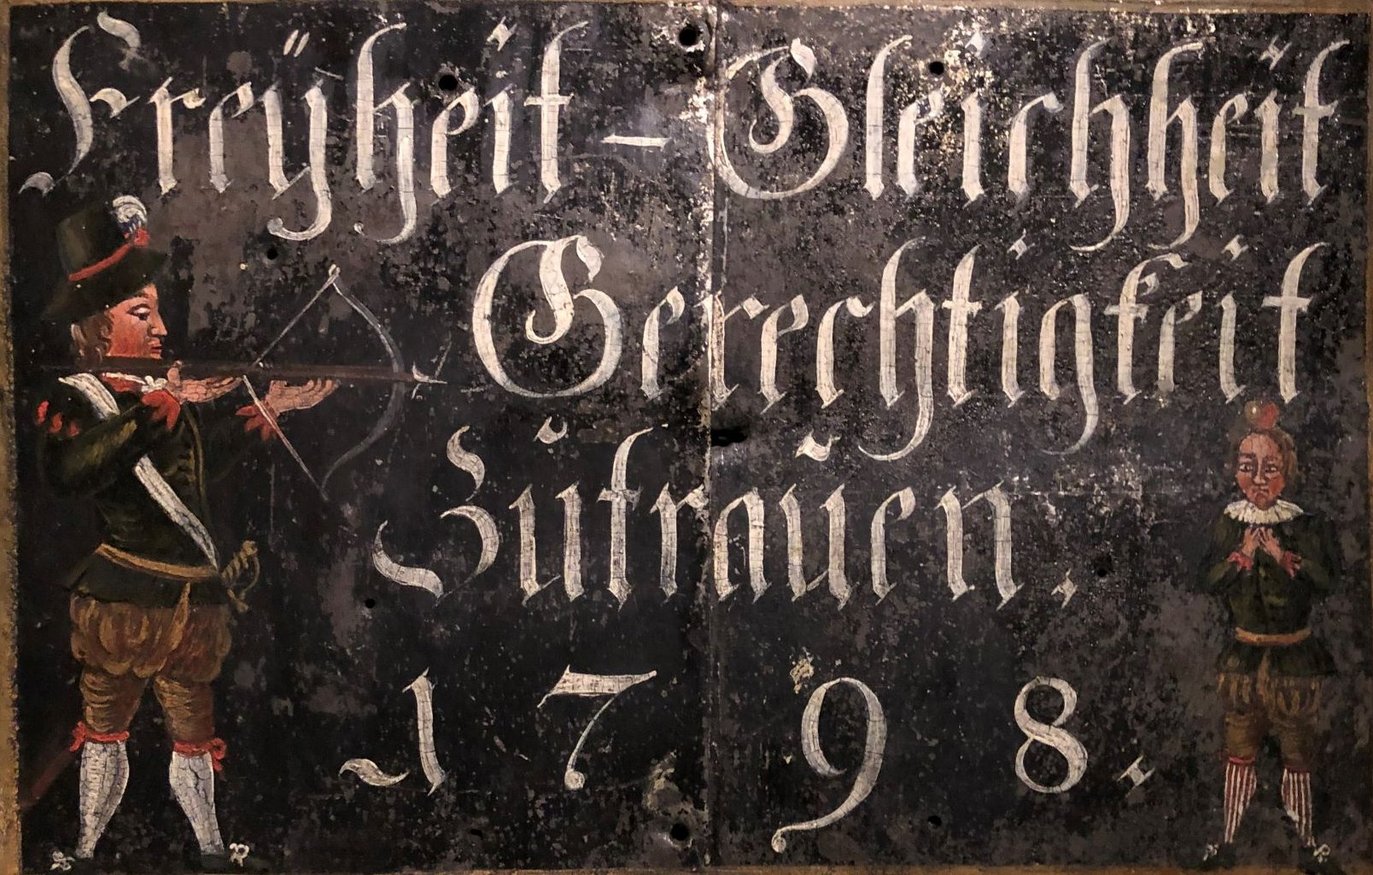 Freÿheit – Gleichheit
Gerechtigkeit
Zŭfraŭen,
1798.